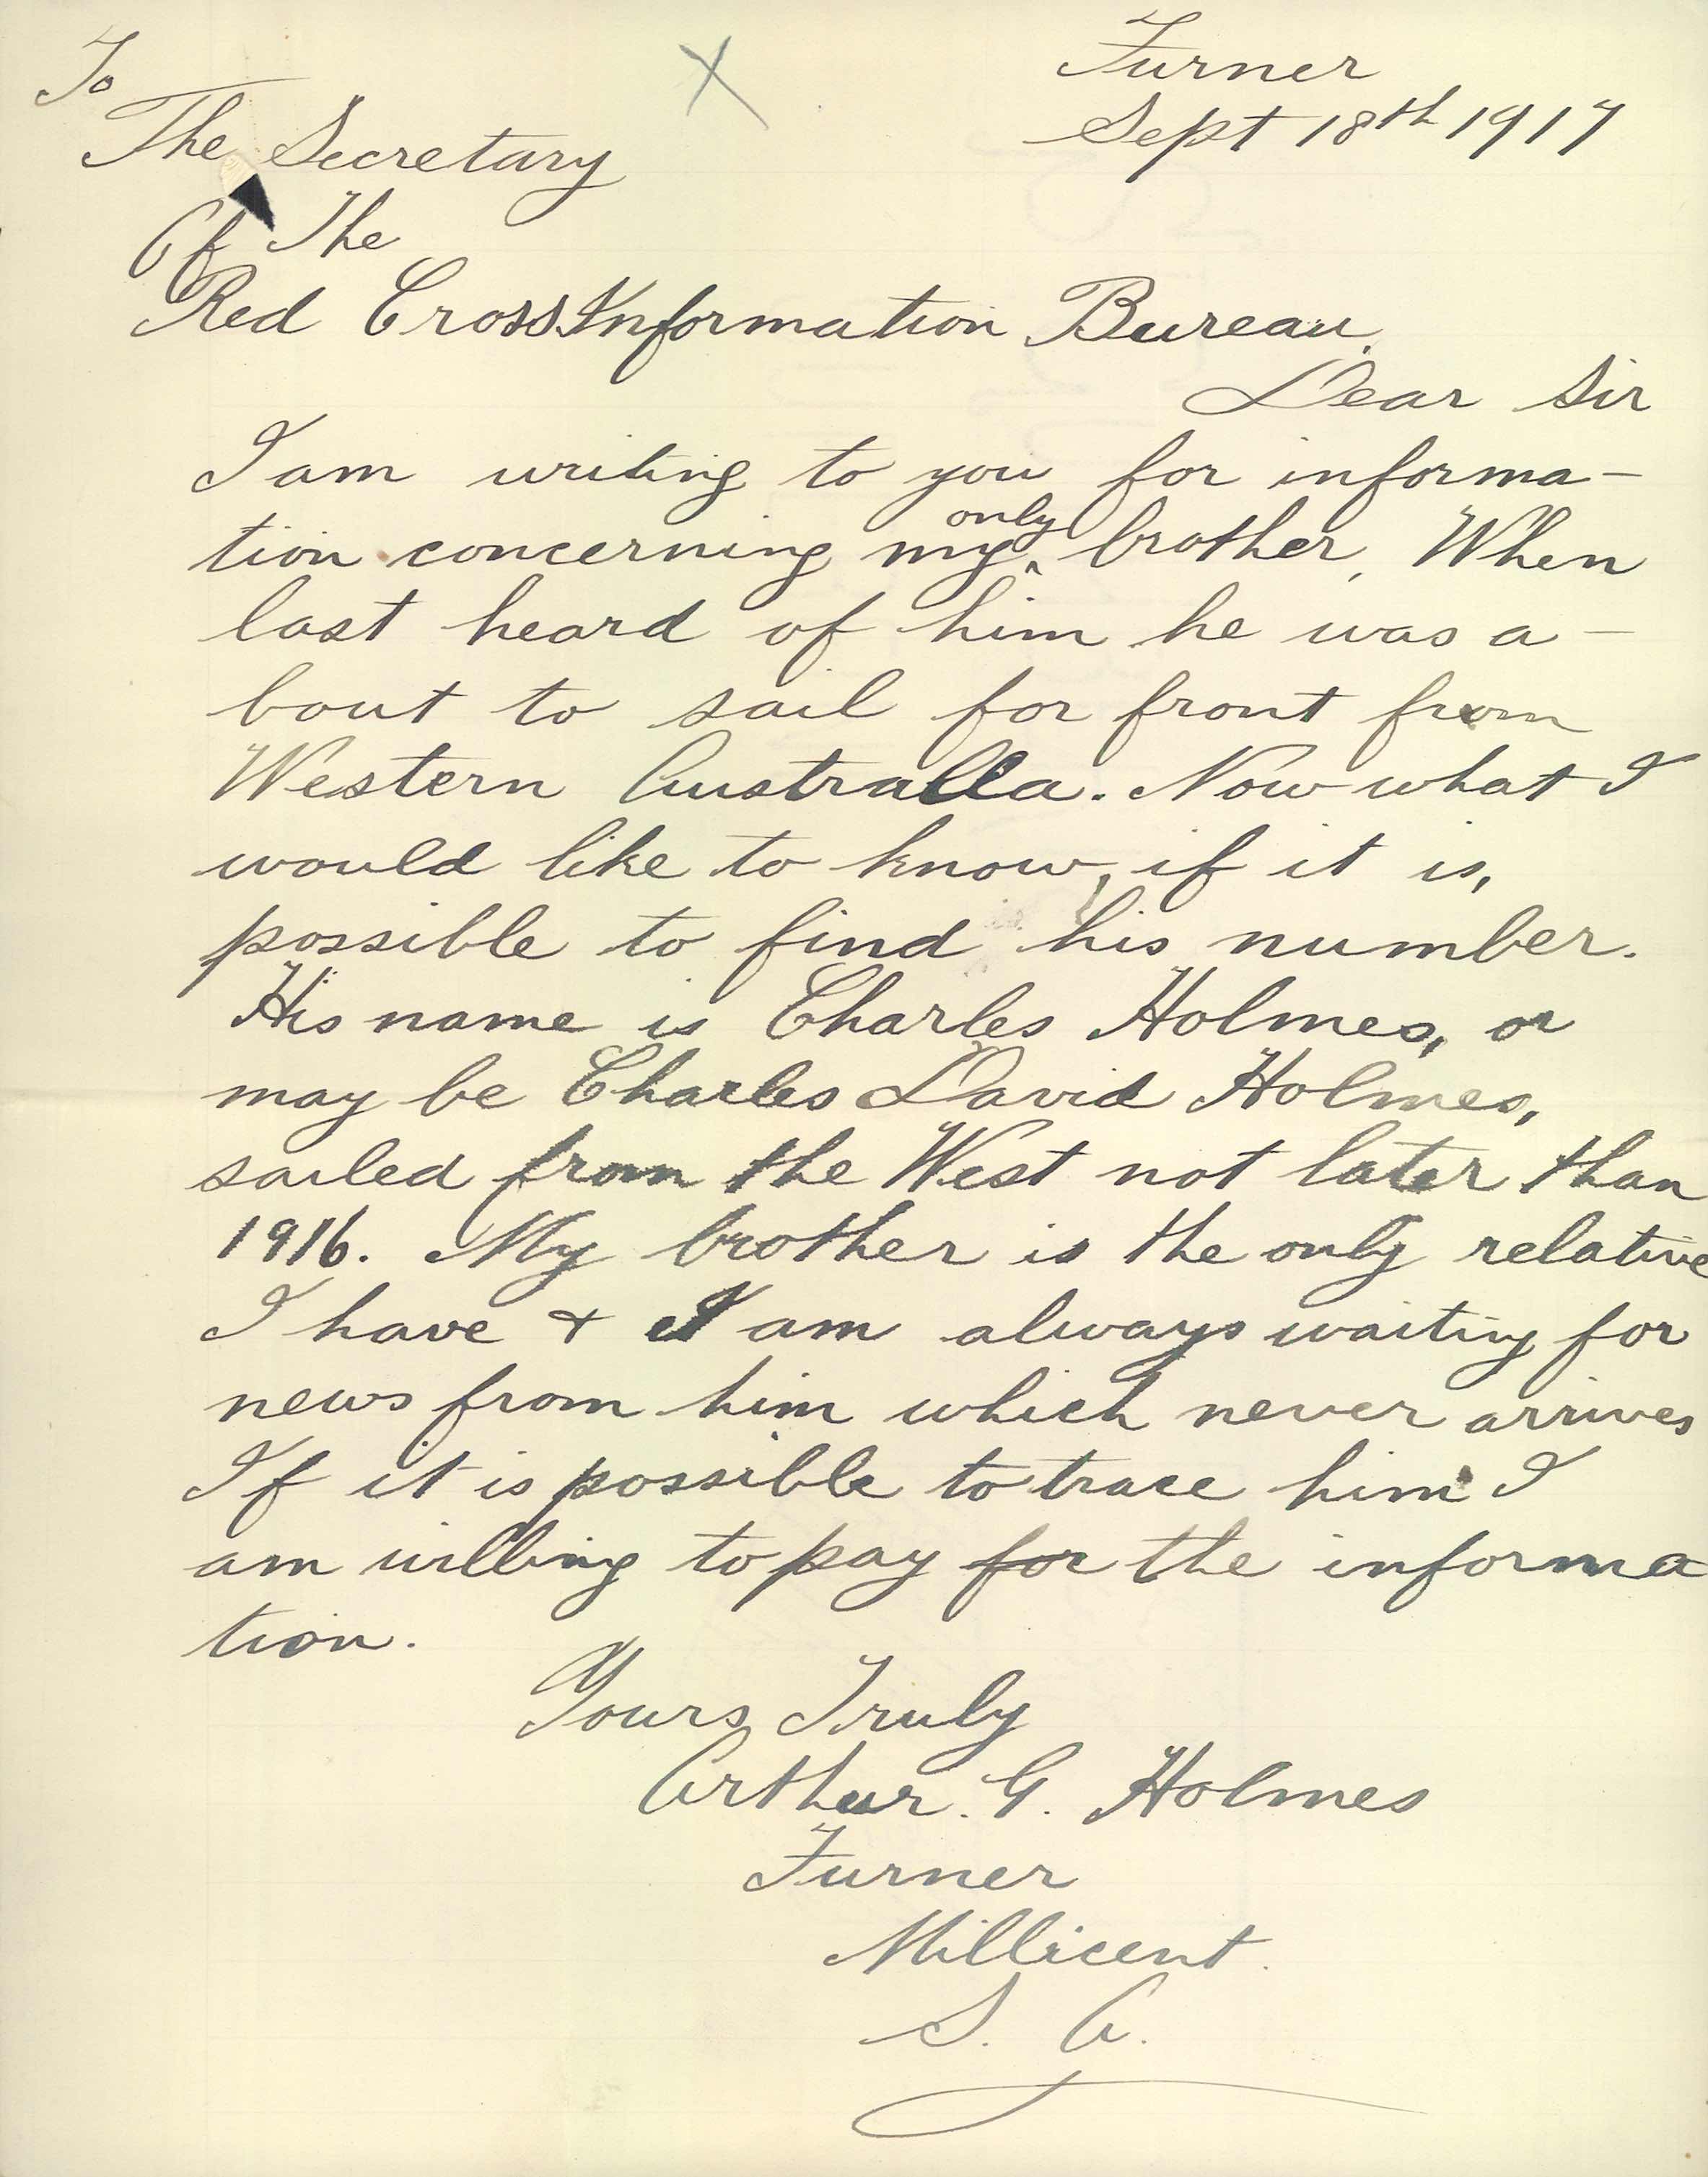 Furner
Sept 18th 1917
To
The Secretary
Of The
Red Cross Information Bureau.
Dear Sir
I am writing to you for informa-
tion concerning my only brother, When
last heard of him he was a-
bout to sail for front from
Western Australia. Now what I
would like to know, if it is,
possible to find his number.
His name is Charles Holmes, or
may be Charles David Holmes,
sailed from the West not later than
1916. My brother is the only relative
I have & I am always waiting for
news from him which never arrives
If it is possible to trace him I
am willing to pay for the informa
tion.
Yours Truly
Arthur. G. Holmes
Furner
Millicent.
S. A.